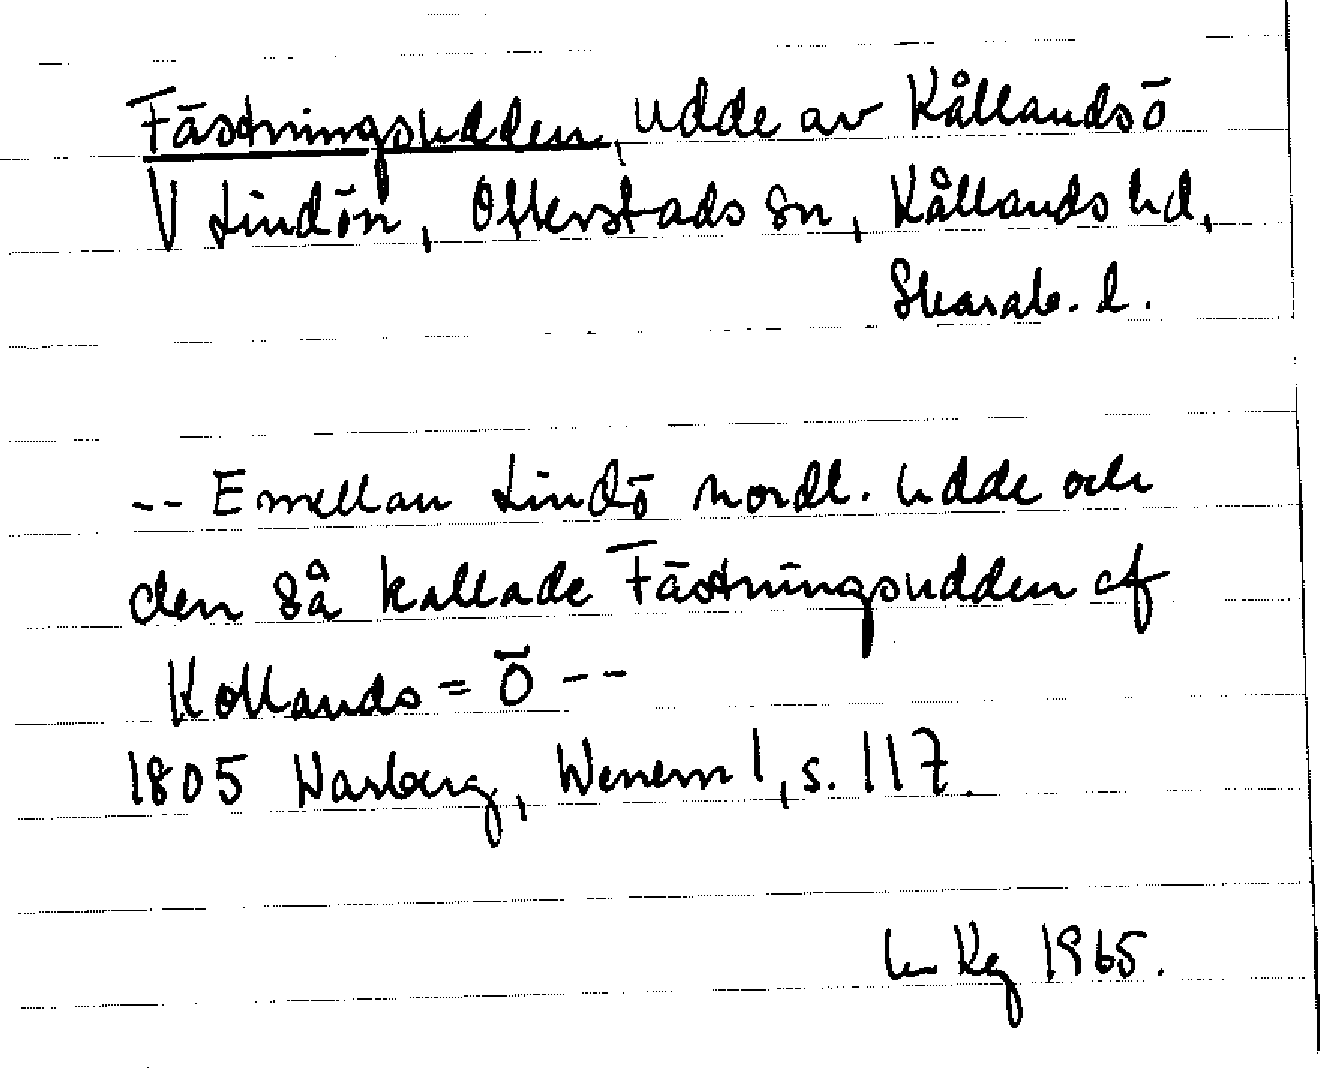 Fästningsudden, udde av Kållandsö
V Lindön, Otterstads sn, Kållands hd,
Skarab. l.
-- Emellan Lindö nordl. Udde och
den så kallade Fästningsudden af
Kollands = Ö --
1805 Warberg, Wenern 1, s. 117.
1965.